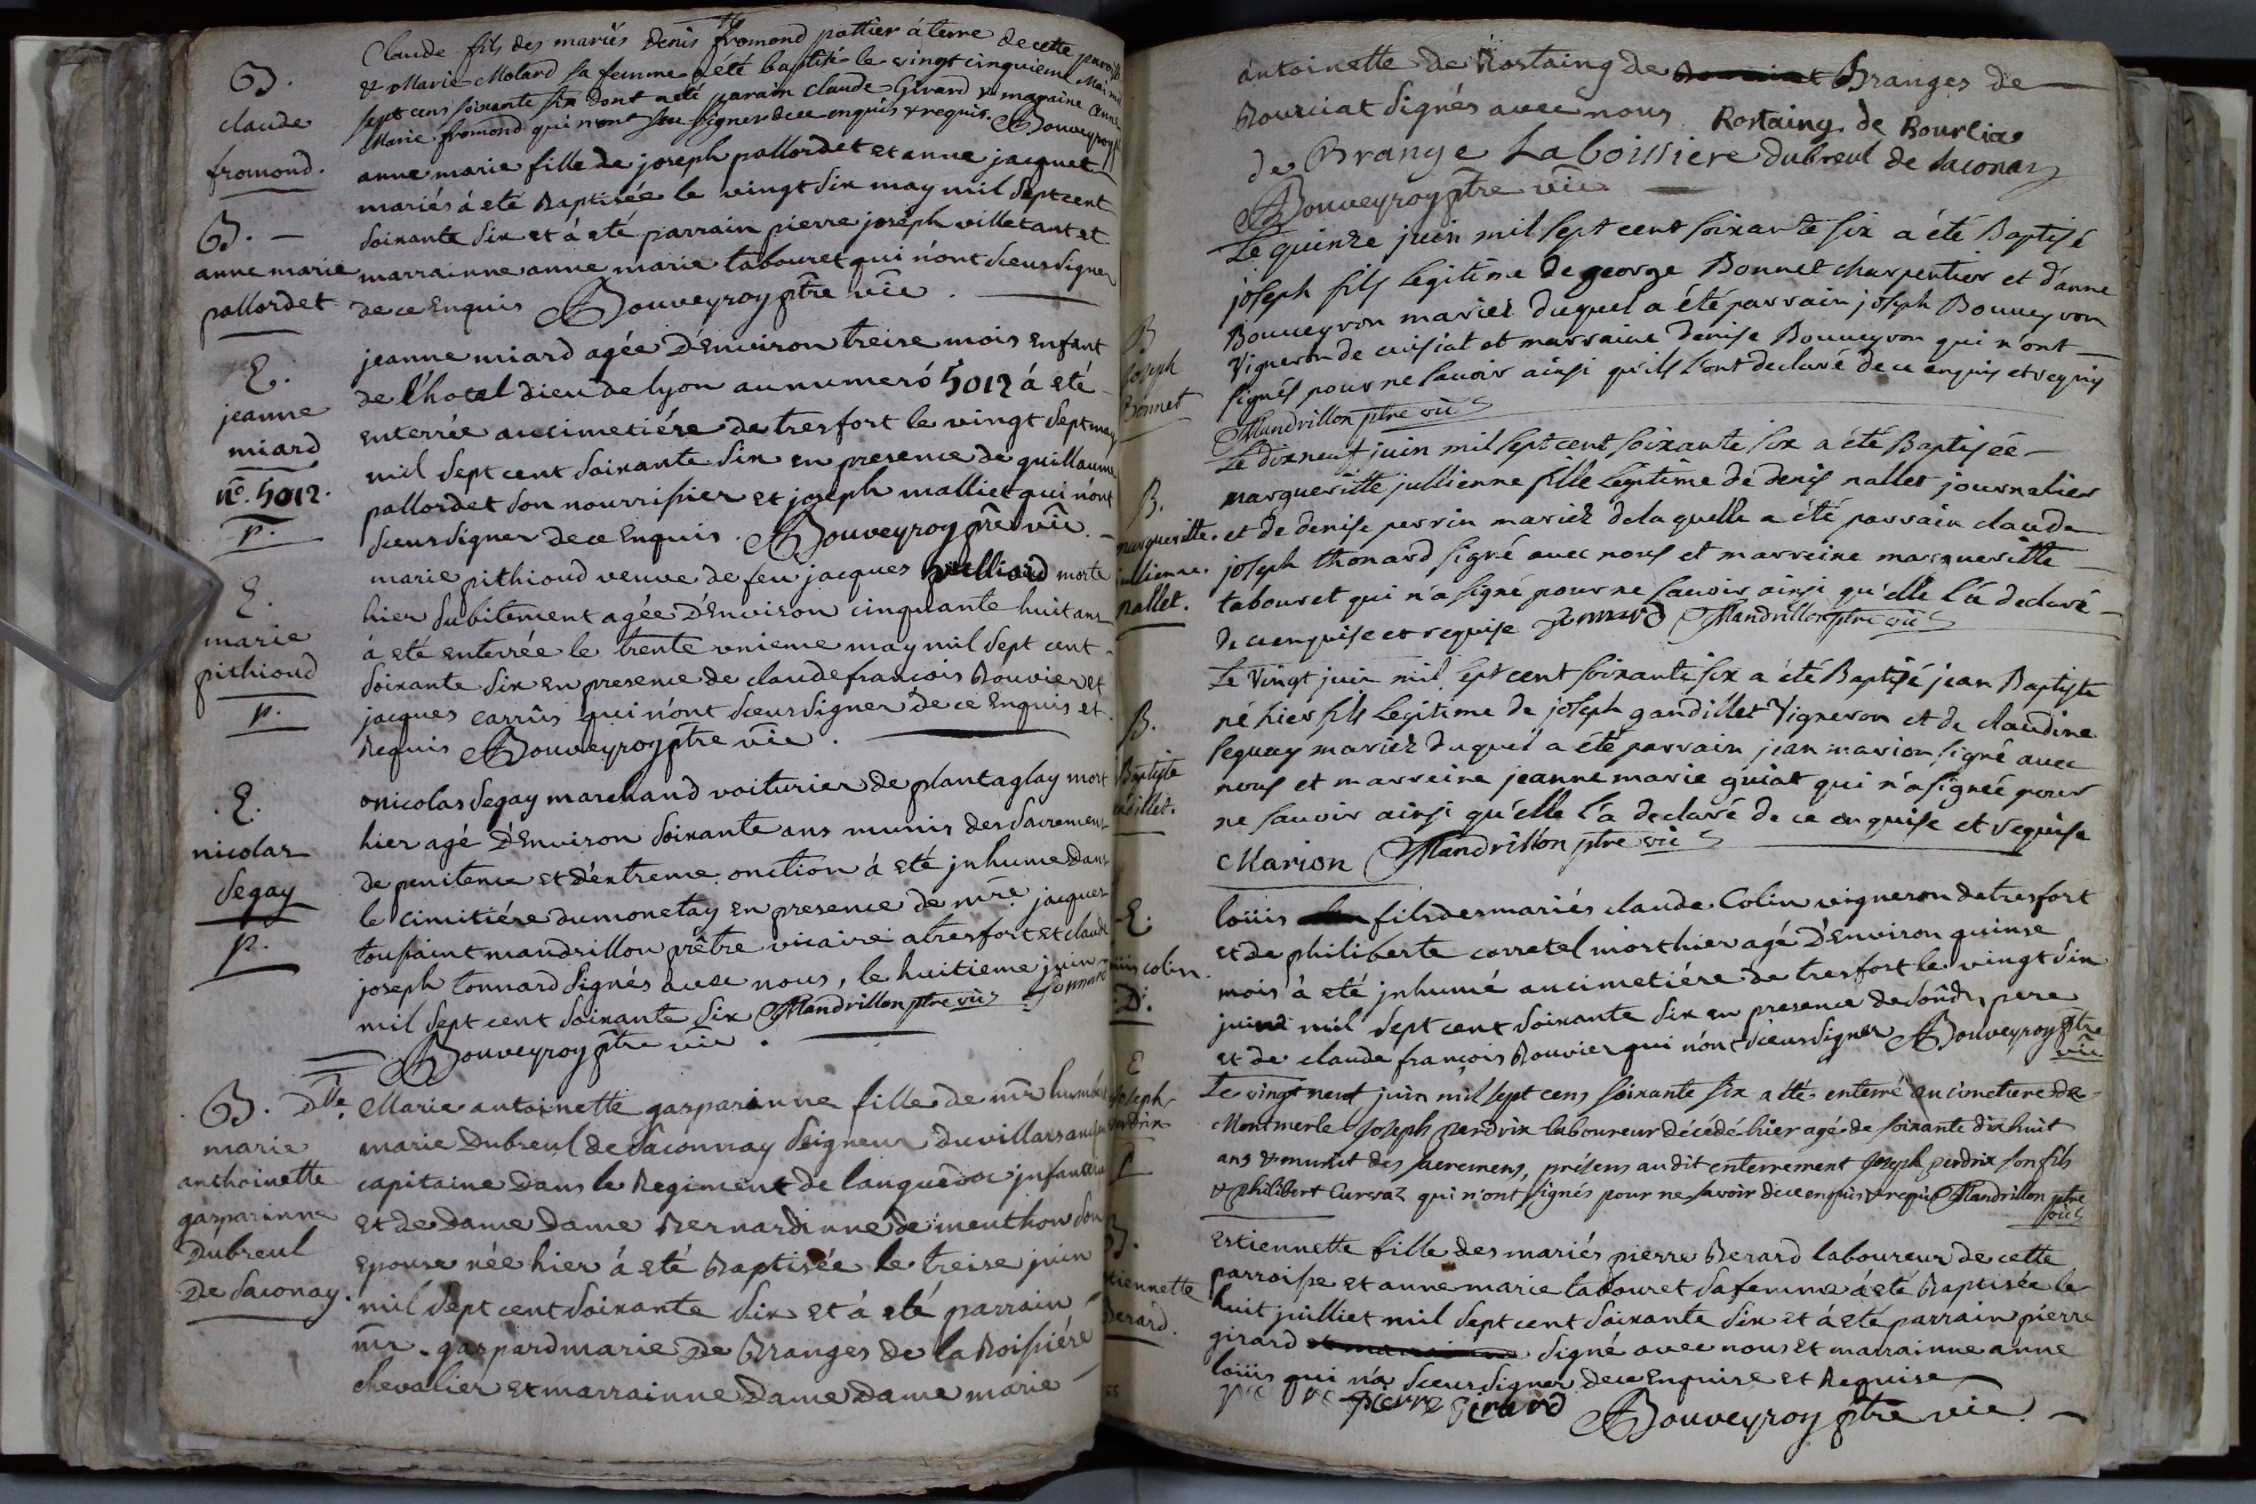 B.
claude
fromond.
Claude fils des mariés denis fromond pottier à terre de cette
& Marie Molard sa femme a été baptisé le vingt cinquieme Mai
sept cens soixante six dont a été parain claude Girard & maraine
Marie fromond qui n'ont sçu signer de ce enquis & requis. Bouveyroy
B.
anne marie
pallordet
anne marie fille de joseph pallordet et anne jacquet
mariés á eté Baptisée le vingt six may mil sept cent
soixante six et á eté parrain pierre joseph villetant et
marrainne anne marie tabouret qui n'ont sceus signer
de ce Enquis Bouveyroy ptre vic.
E.
jeanne
miard
no. 5012.
p.
jeanne miard agée D'Environ treise mois enfant
de l'hotel dieu de lyon au numeró 5012 á eté
enterrée au cimetiére de tresfort le vingt sept may
mil sept cent soixante six en presence de guillaume
pallordet son nourrissier et joseph malliet qui n'ont
sceus signer de ce Enquis. Bouveyroy ptre vic.
E.
marie
pithioud
p.
marie pithioud veuve de feu jacques morte
hier subitement agée D'Environ cinquante huit ans
á eté enterrée le trente unieme may mil sept cent
soixante six en presence de claude francois Bouvier et
jacques carrûs qui n'ont sceus signer De ce Enquis et
Requis Bouveyroy ptre vic.
E.
nicolas
segay
p.
nicolas segay marchand voiturier de plantaglay mort
hier agé D'Environ soixante ans munis des sacrement
de penitence et d'extreme onction á eté jnhume Dans
le cimitiére du monetay en presence de mre. jacques
toussaint mandrillon prêtre vicaire a tresfort et claude
joseph tonnard signés avec nous, le huitieme juin
mil sept cent soixante six Mandrillon ptre vic Tonnard
Bouveyroy ptre vic.
B. Dlle.
marie
anthoinette
gasparinne
Dubreul
De saconay.
Marie antoinette gasparinne fille de mr
marie Dubreul de saconnay seigneur du villars
capitaine Dans le Regiment de languedoc jnfanterie
et de Dame Dame Bernardinne de menthon son
epouse née hier á eté Baptisée le treise juin
mil sept cent soixante six et á eté parrain
mr. gaspard marie De Branges de la Boissiére
chevalier et marrainne Dame Dame marie
antoinette de Rostaing de Branges de
Bourciat signés avec nous Rostaing de Bourcia
de Brange Laboissiere dubreul de saconay
Bouveyroy ptre vic
B
joseph
Bonnet
Le quinze juin mil sept cent soixante six a été Baptisé
joseph fils legitime de george Bonnet charpentier et d'anne
Bouveyron mariez duquel a été parrain joseph Bouveyron
Vigneron de cuisiat et marraine denise Bouveyron qui n'ont
signés pour ne savoir ainsi qu'ils l'ont declaré de ce enquis et requis
Mandrillon ptre vic
B.
marguerite
jullienne.
nallet.
Le dixneuf juin mil sept cent soixante six a été Baptisée
marguerite jullienne fille legitime de denis nallet journalier
et de denise perrin mariez de laquelle a été parrain claude
joseph thonard signé avec nous et marreine marguerite
tabouret qui n'a signé pour ne savoir ainsi qu'elle l'a declaré
de ce enquise et requise Tonnard Mandrillon ptre vic
B.
Baptiste
gandillet.
Le Vingt juin mil sept cent soixante six a été Baptisé jean Baptiste
né hier fils legitime de joseph gandillet Vigneron et de claudine
seguay mariez duquel a été parrain jean marion signé avec
nous et marreine jeanne marie guiat qui n'a signée pour
ne savoir ainsi qu'elle l'a declaré de ce enquise et requise
Marion Mandrillon ptre vic
E.
loüis colin.
D.
loüis fils des mariés claude Colin vigneron de tresfort
et de philiberte corretel mort hier agé D'Environ quinse
mois á eté jnhumé au cimetiére de tresfort le vingt six
juin mil sept cent soixante six en presence de sondt pere
et de claude françois Bouvier qui n'ont sceus signer Bouveyroy ptre
vic
E
Joseph
perdrix
p
Le vingt neuf juin mil sept cens soixante six a été enterré au cimetiere de
Montmerle Joseph perdrix laboureur décédé hier agé de soixante dix huit
ans & munit des sacremens, présens au dit enterrement Joseph perdrix son fils
& philibert Curvaz qui n'ont signés pour ne savoir de ce enquis & requis Mandrillon ptre
vic
B.
Estiennette
Berard.
Estiennette fille des mariés pierre Berard laboureur de cette
parroisse et anne marie tabouret sa femme á eté Baptisée le
huit juilliet mil sept cent soixante six et á eté parrain pierre
girard signé avec nous et marrainne anne
loüis qui n'a sceus signer de ce Enquise et Requise
pierre girard Bouveyroy ptre vic.